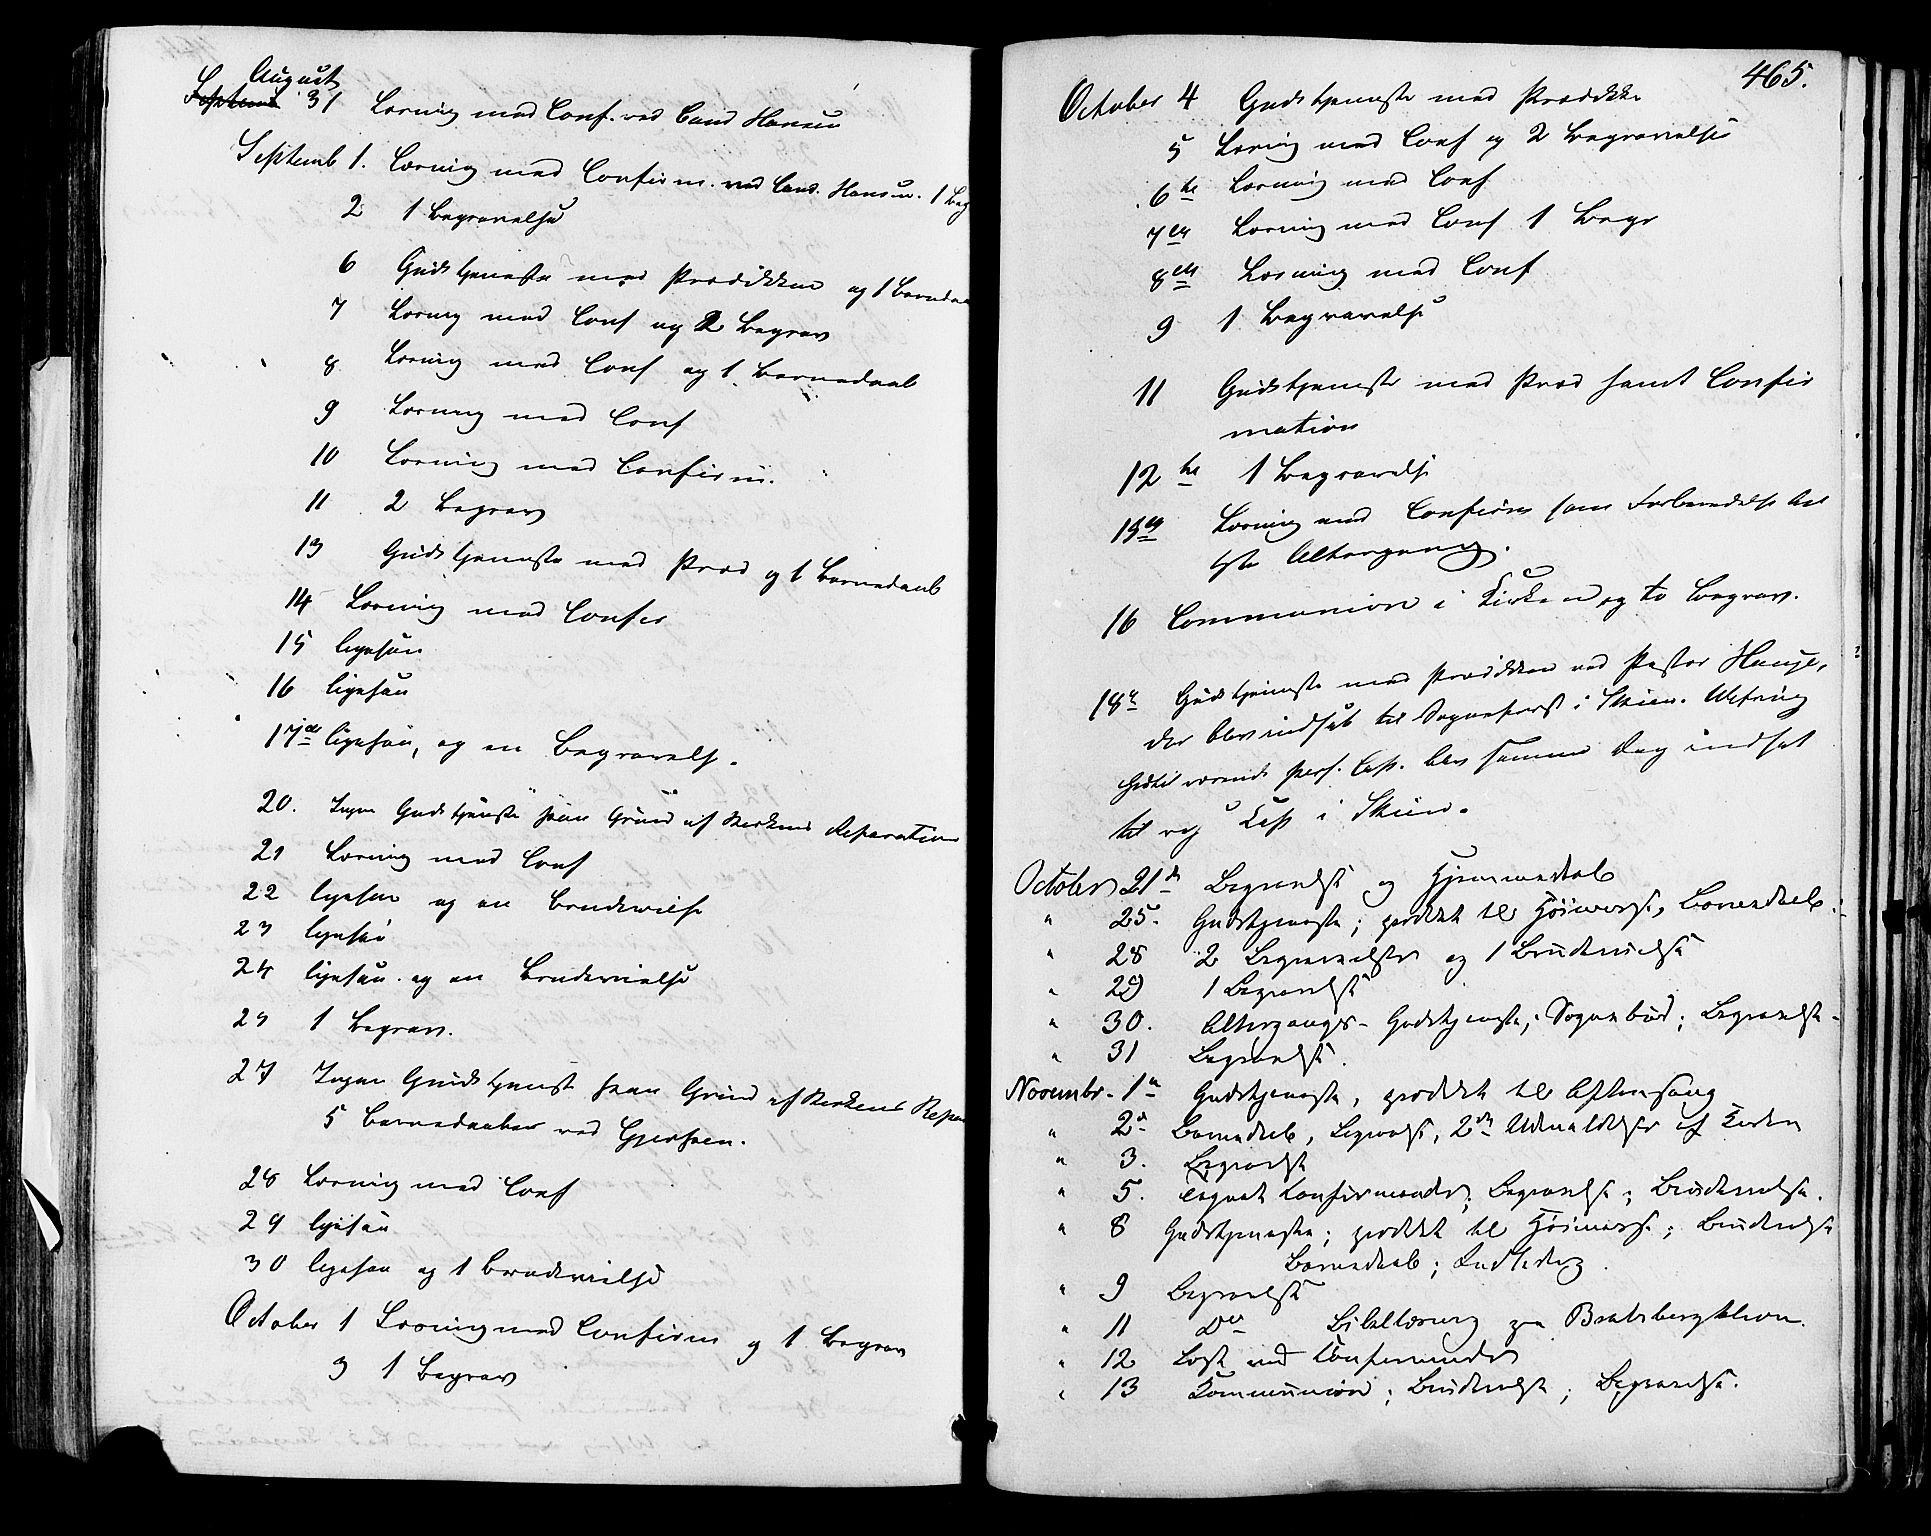 August
Septemb 31 Læsning med Conf. ved Cand Hansen
Septemb 1. Læsning med Confirm. ved Cand. Hansen. 1 Beg
2 1 Begravelse
6 Gudstjeneste med Prædikken og 1 Barnedaa
7 Læsning med Conf og 2 Begrav
8 Læsning med Conf og 1 Barnedaab
9 Læsning med Conf
10 Læsning med Confirm.
11 2 Begrav
13 Gudstjeneste med Præd og 1 Barnedaab
14 Læsning med Confir
15 ligesaa
16 ligesaa
17de ligesaa, og en Begravelse.
20. Ingen Gudstjeneste paa Grund af Kirkens Reparation
21 Læsning med Conf
22 ligesaa og en Brudevielse
23 ligesaa
24 ligesaa og en Brudevielse
25 1 Begrav.
27 Ingen Gudstjenest paa Grund af Kirkens Repar
5 Barnedaaber ved Gjerpen.
28 Læsning med Conf
29 ligesaa
30 ligesaa og 1 Brudevielse
October 1 Læsning med Confirm og 1 Begrav
3 1 Begrav
465.
October 4 Gudstjeneste med Prædikke
5 Læsning med Conf og 2 Begravelser
6te Læsning med Conf
7de Læsning med Conf 1 Begr
8de Læsning med Conf
9 1 Begravelse
11 Gudstjeneste med Præd samt Confir
mation
12te 1 Begravelse
15de Læsning med Confirm som Forberedelse til
1ste Altergang.
16 Communion i Kirken og to Begrav.
18de Gudstjeneste med Prædikken ved Pastor Hauge,
der blev indsat til Sogneprest i Skien. Wefring
hidtil værende pers. Cap. blev samme Dag indsat
til Cap i Skien.
October 21de Begravelse og Hjemmedaab
" 25. Gudstjeneste; prædiket til Høimesse, Barnedaab.
" 28 2 Begravelser og 1 Brudevielse
" 29 1 Begravelse
" 30. Altergangs-Gudstjeneste; Sognebud; Begravelse.
" 31 Begravelse.
Novembr. 1ste Gudstjeneste, prædiket til Aftensang
" 2de Barnedaab, Begravelse, 2de Udmeldelser af Kirken
" 3. Begravelse
" 5. Konfirmander; Begravelse; Brudevielse.
" 8 Gudstjeneste; prædiket til Høimesse; Brudevielse
Barnedaab;
" 9 Begravelse
" 11 Do Bibellæsning paa Bratsbergkleven.
" 12 Læst med Konfirmander
" 13 Kommunion; Brudevielse; Begravelse.